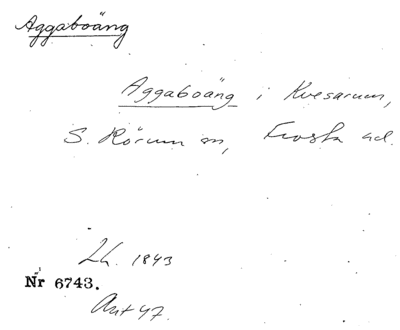 Aggaboäng
Aggaboäng i Kvesarum,
S. Rörum sn, Frosta hd.
Lh. 1843
Nr 6743.
Ant 47.